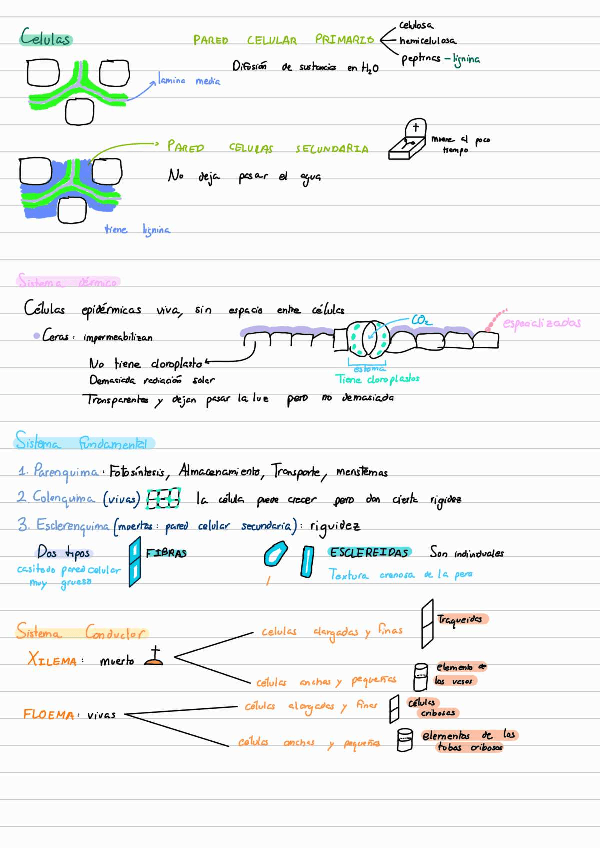 Celulas
PARED CELULAR PRIMARIO
celulosa
hemicelulosa
peptinas - lignina
Difusión de sustancias en H2O
lamina media
PARED CELULAS SECUNDARIA
muere al poco tiempo
No deja pasar el agua
tiene lignina
Sistema dérmico
Células epidérmicas viva, sin espacio entre células
Ceras: impermeabilizan
CO2
especializadas
No tiene cloroplasto
estoma
Demasiada radiación solar
Tiene cloroplastos
Transparentes y dejan pasar la lue pero no demasiada
Sistema Fundamental
1. Parenquima: Fotosíntesis, Almacenamiento, Transporte, meristemas
2 Colenquima (vivas) la célula puede crecer pero dan cierta rigidez
3. Esclerenquima (muertas: pared celular secundaria): riguidez
Dos tipos
FIBRAS
ESCLEREIDAS Son individuales
casitodo pared celular
muy gruesa
Textura arenosa de la pera
Sistema Conductor
celulas alargadas y finas
Traqueidas
XILEMA: muerto
células anchas y pequeñas
elemento de
los vasos
FLOEMA: vivas
células alargadas y finas
células
cribosas
células anchas y pequeñas
elementos de los
tubos cribosos